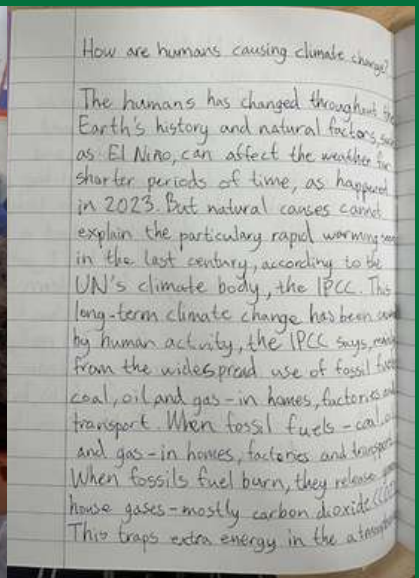 How are humans causing climate change?
The humans has changed throughout the
Earth's history and natural factors, such
as El Nino, can affect the weather for
shorter periods of time, as happened
in 2023. But natural causes cannot
explain the particulary rapid warming seen
in the last century, according to the
UN's climate body, the IPCC. This
long-term climate change has been
by human activity, the IPCC says,
from the widespread use of fossil
coal, oil and gas - in homes, factories and
transport. When fossil fuels - coal,
and gas - in homes, factories and transport
When fossils fuel burn, they release
house gases - mostly carbon dioxide
This traps extra energy in the